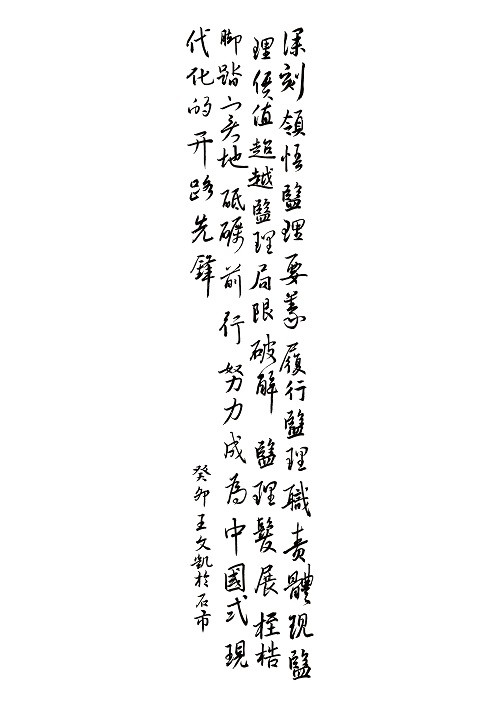 深刻領悟監理要義履行監理職責體現監
理價值超越監理局限破解監理髮展桎梏
脚踏實地砥礪前行努力成為中國式現
代化的开路先鋒
癸卯王文凱於石市